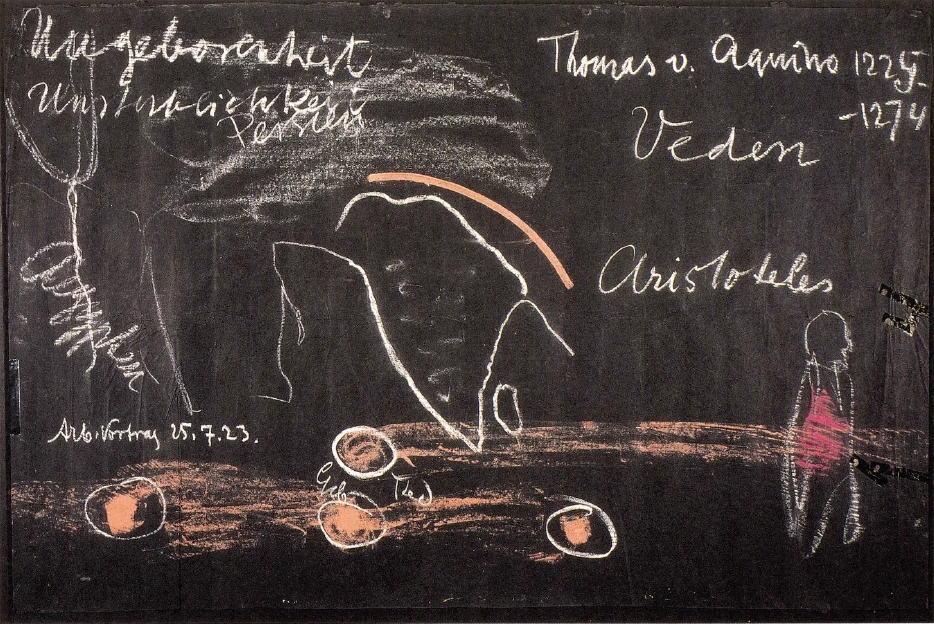 Ungeborenheit
Unsterblichkeit
Persien
Thomas v. Aquino 1225-
-1274
Veden
Aristoteles
Ägypten
Arb.Vortrag 25.7.23.
Geb (Tod)